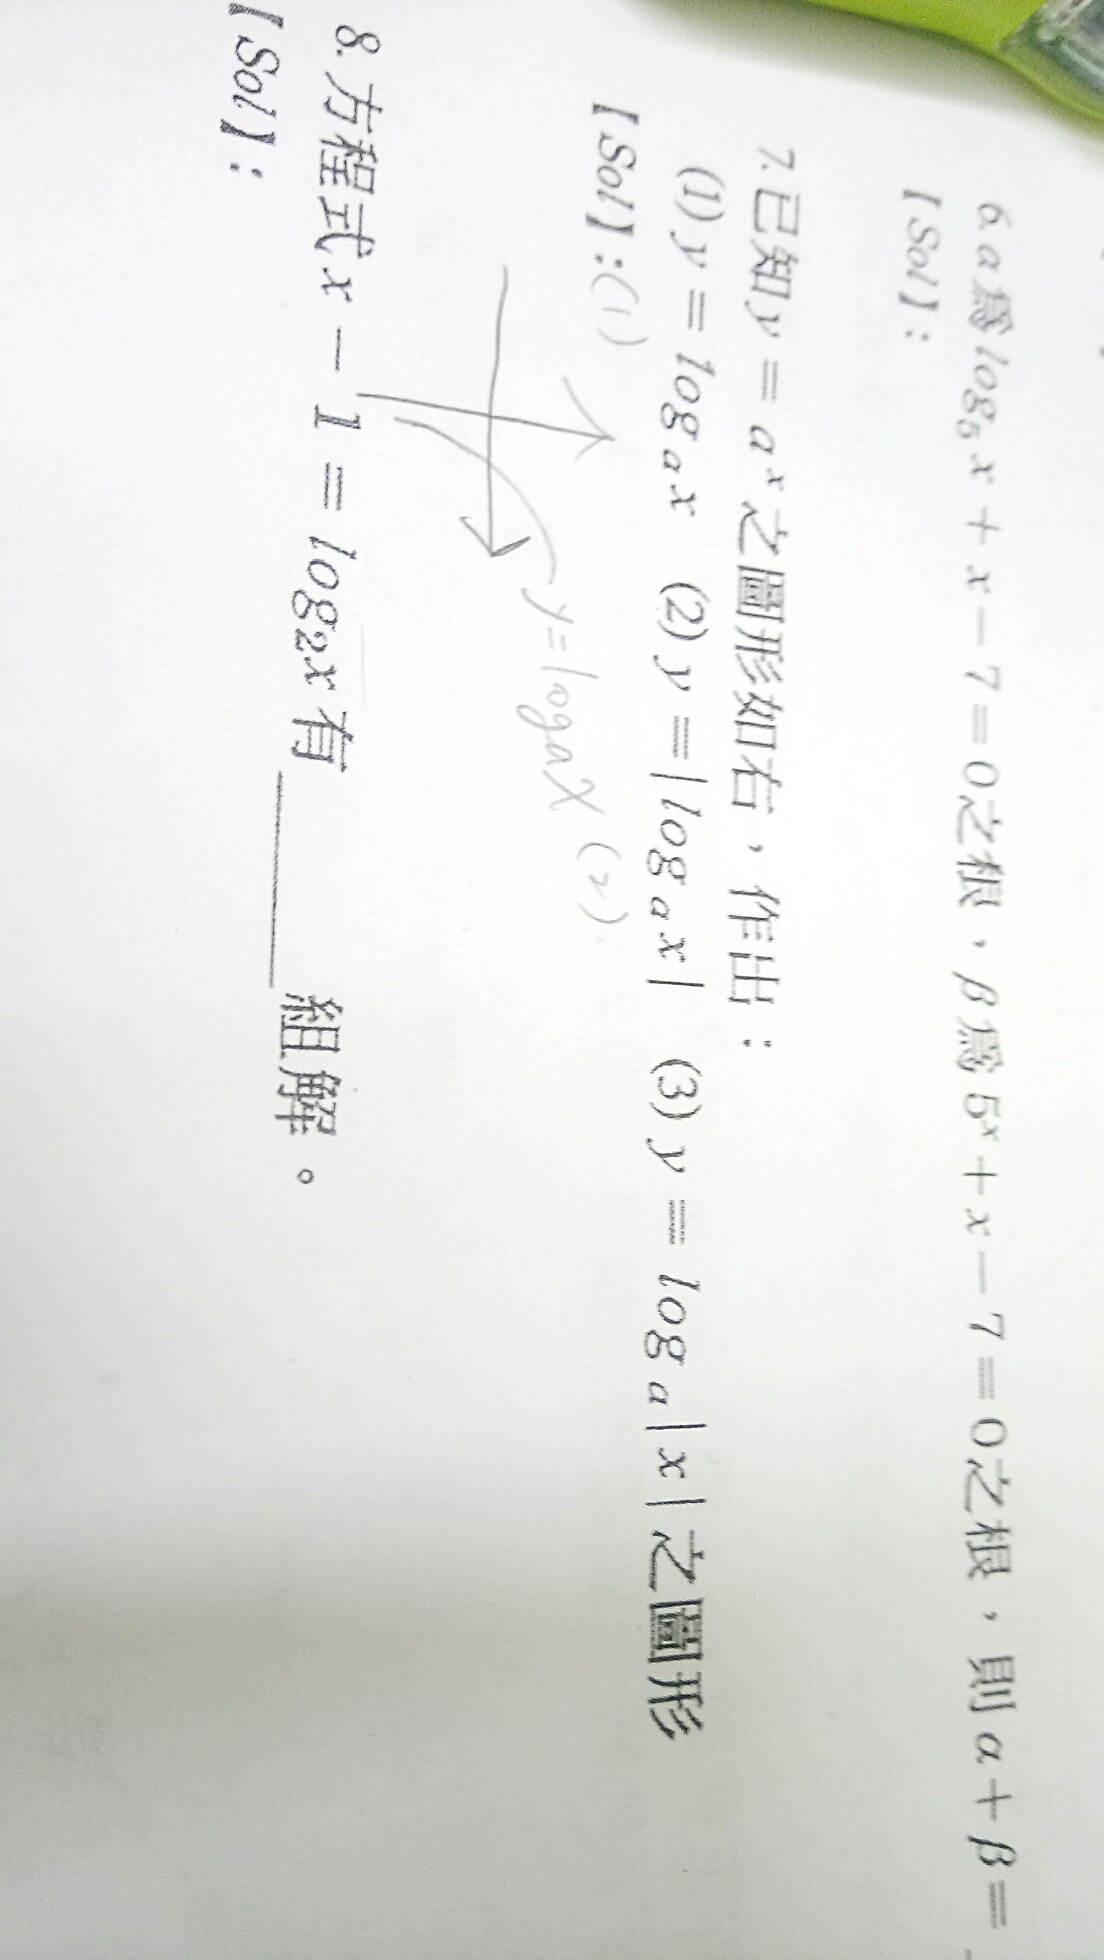 6. α為log₅x + x − 7 = 0之根，β為5ˣ + x − 7 = 0之根，則α + β =
【Sol】:
7. 已知y = aˣ之圖形如右，作出：
(1) y = log ₐ x (2) y = | log ₐ x | (3) y = log ₐ | x | 之圖形
【Sol】: (1)
y = logₐx (2)
8. 方程式 x − 1 = log₂x 有＿＿＿組解。
【Sol】: